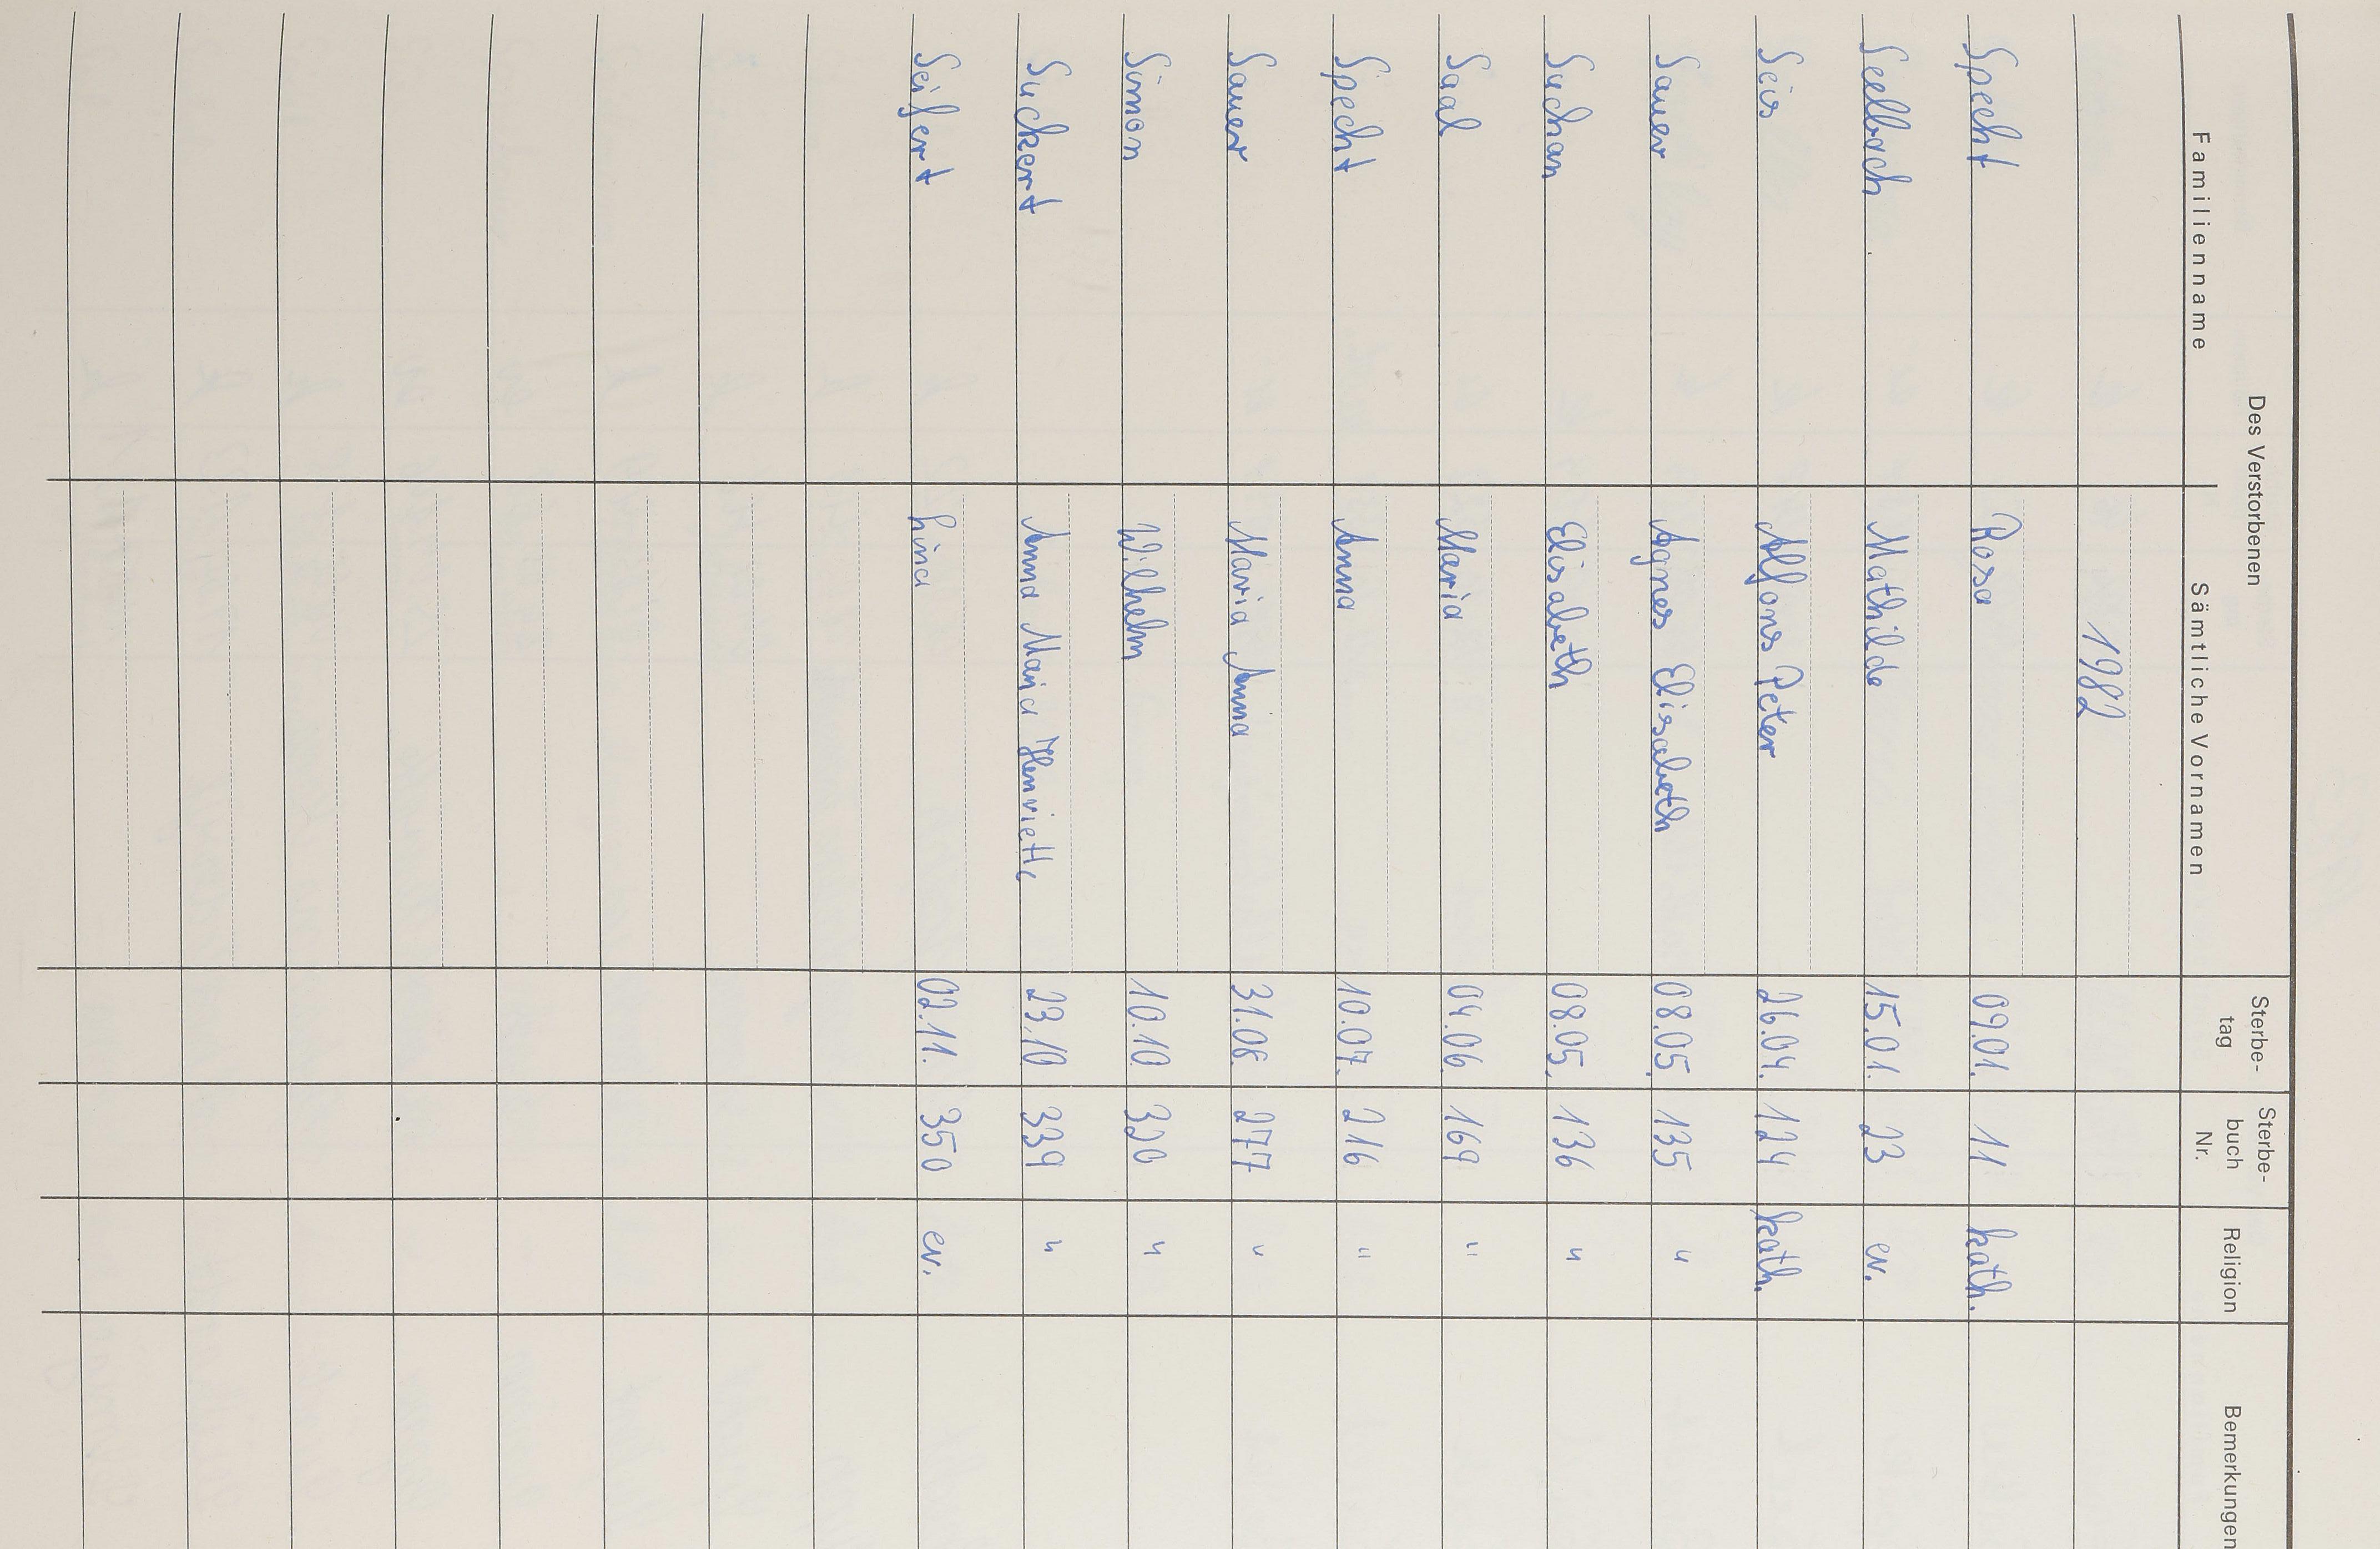 Des Verstorbenen
Familienname Sämtliche Vornamen Sterbe-tag Sterbe-buch Nr. Religion Bemerkungen
1982
Specht Rosa 09.01. 11 kath.
Seelbach Mathilde 15.01. 23 ev.
Seis Alfons Peter 26.04. 124 kath.
Sauer Agnes Elisabeth 08.05. 135 "
Suchan Elisabeth 08.05. 136 "
Saal Maria 04.06. 169 "
Specht Anna 10.07. 216 "
Sauer Maria Anna 31.08. 277 "
Simon Wilhelm 10.10. 320 "
Suckert Anna Maria Henriette 23.10 339 "
Seifert Lina 02.11. 350 ev.